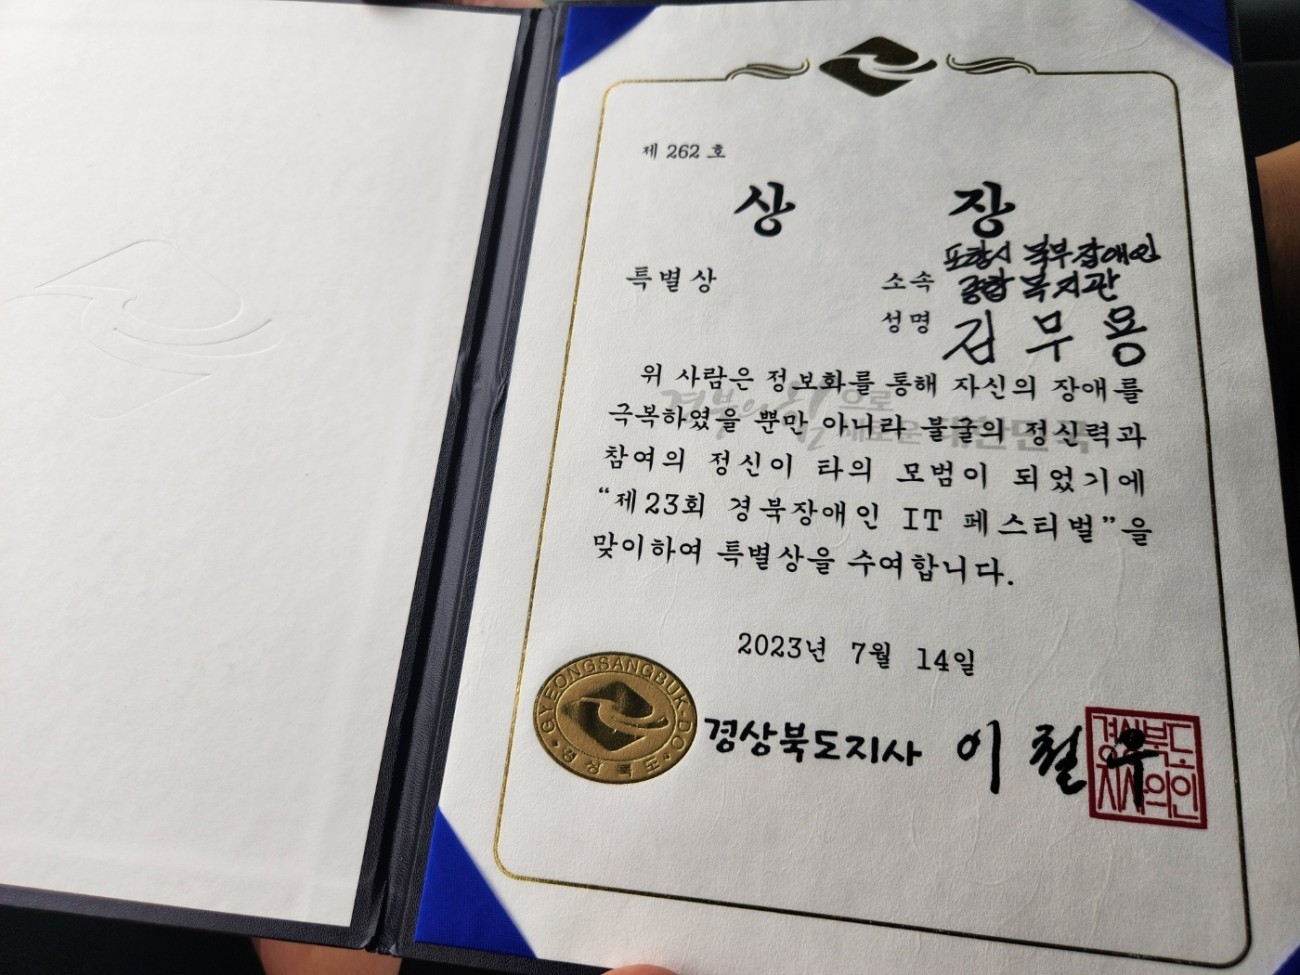 제 262 호
상 장
특별상
소속 포항시 북부장애인
종합복지관
성명 김무용
위 사람은 정보화를 통해 자신의 장애를
극복하였을 뿐만 아니라 불굴의 정신력과
참여의 정신이 타의 모범이 되었기에
“제23회 경북장애인 IT 페스티벌”을
맞이하여 특별상을 수여합니다.
경북의 힘으로
새로운 대한민국
2023년 7월 14일
GYEONGSANGBUK-DO
경상북도
경상북도지사 이철우
경상북도
지사의인